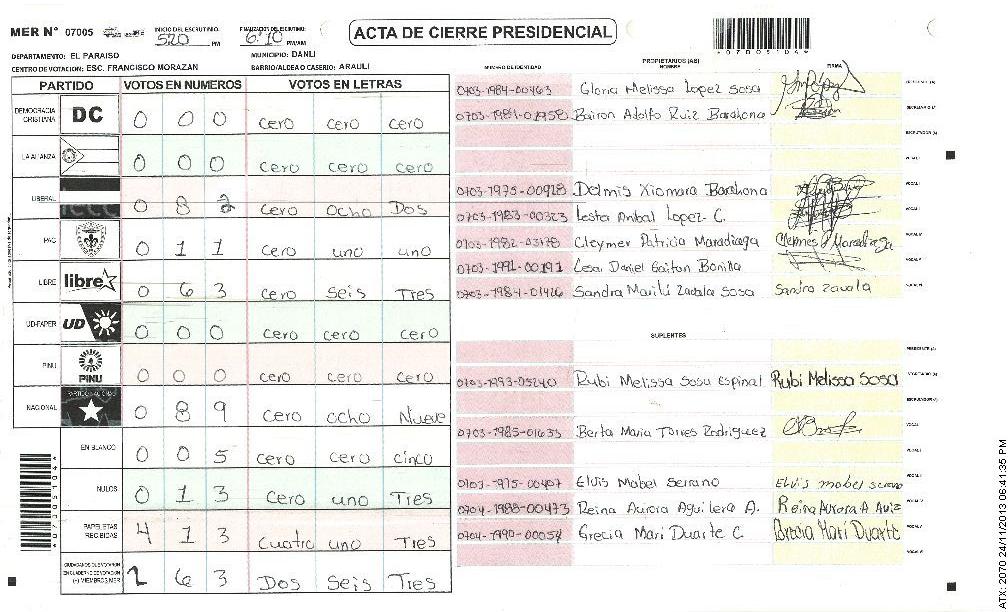 MER N° 07005 INICIO DEL ESCRUTINIO: 520 PM FINALIZACION DEL ESCRUTINIO: 6:10 PM/AM
ACTA DE CIERRE PRESIDENCIAL
*07005104*
DEPARTAMENTO: EL PARAISO MUNICIPIO: DANLI
CENTRO DE VOTACION: ESC. FRANCISCO MORAZAN BARRIO/ALDEA O CASERIO: ARAULI
PARTIDO VOTOS EN NUMEROS VOTOS EN LETRAS
DEMOCRACIA CRISTIANA DC 0 0 0 cero cero cero
LA ALIANZA 0 0 0 cero cero cero
LIBERAL 0 8 2 cero ocho Dos
PAC 0 1 1 cero uno uno
LIBRE libre 0 6 3 cero Seis Tres
UD-FAPER UD 0 0 0 cero cero cero
PINU PINU 0 0 0 cero cero cero
NACIONAL 0 8 9 cero ocho Nueve
EN BLANCO 0 0 5 cero cero cinco
NULOS 0 1 3 cero uno Tres
PAPELETAS RECIBIDAS 4 1 3 Cuatro uno Tres
CIUDADANOS QUE VOTARON EN CUADERNO DE VOTACION (+) MIEMBROS MER 2 6 3 Dos Seis Tres
*07005104*
NUMERO DE IDENTIDAD PROPIETARIOS (AS) NOMBRE FIRMA
0703-1984-00463 Gloria Melissa Lopez Sosa
0703-1981-01958 Bairon Adolfo Ruiz Barahona
0703-1975-00928 Dolmis Xiomara Barahona
0703-1983-00323 Lester Anibal Lopez C.
0703-1982-03178 Cleymer Patricia Maradiaga
0703-1991-00191 Lesa Daniel Gaitan Bonilla
0703-1984-01426 Sandra Marilú Zavala Sosa Sandra Zavala
SUPLENTES
0703-1993-05240 Rubi Melissa Sosa Espinal Rubi Melissa Sosa
0703-1985-01633 Berta Maria Torres Rodriguez
0703-1975-00407 Elvis Mabel Serrano Elvis mabel serrano
0704-1988-00473 Reina Aurora Aguilera A. Reina Aurora A
0704-1990-00054 Grecia Mari Duarte C. Grecia Mari Duarte
ATX: 2070 24/11/2013 06:41:35 PM